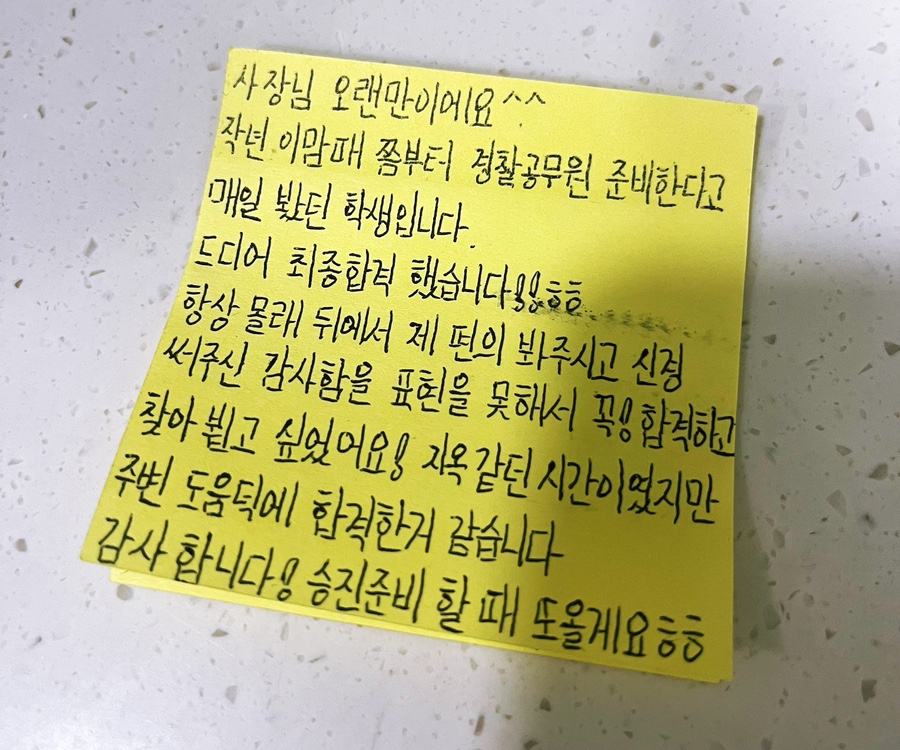 사장님 오랜만이에요^^
작년 이맘때 쯤부터 경찰공무원 준비한다고
매일 봤던 학생입니다.
드디어 최종합격 했습니다!!ㅎㅎ
항상 몰래 뒤에서 제 편의 봐주시고 신경
써주신 감사함을 표현을 못해서 꼭! 합격하고
찾아 뵙고 싶었어요! 지옥같던 시간이였지만
주변 도움덕에 합격한거 같습니다
감사 합니다! 승진준비 할 때 또올게요ㅎㅎ